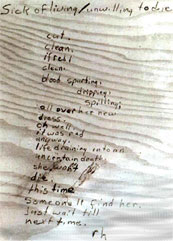 Sick of living / unwilling to die
cut.
clean.
if red
clean.
blood spurting.
dripping.
spilling.
all over her new
dress.
oh well
it was red
anyway.
life draining into an
uncertain death.
she won't
die.
this time
someone'll find her.
just wait till
next time.
rh